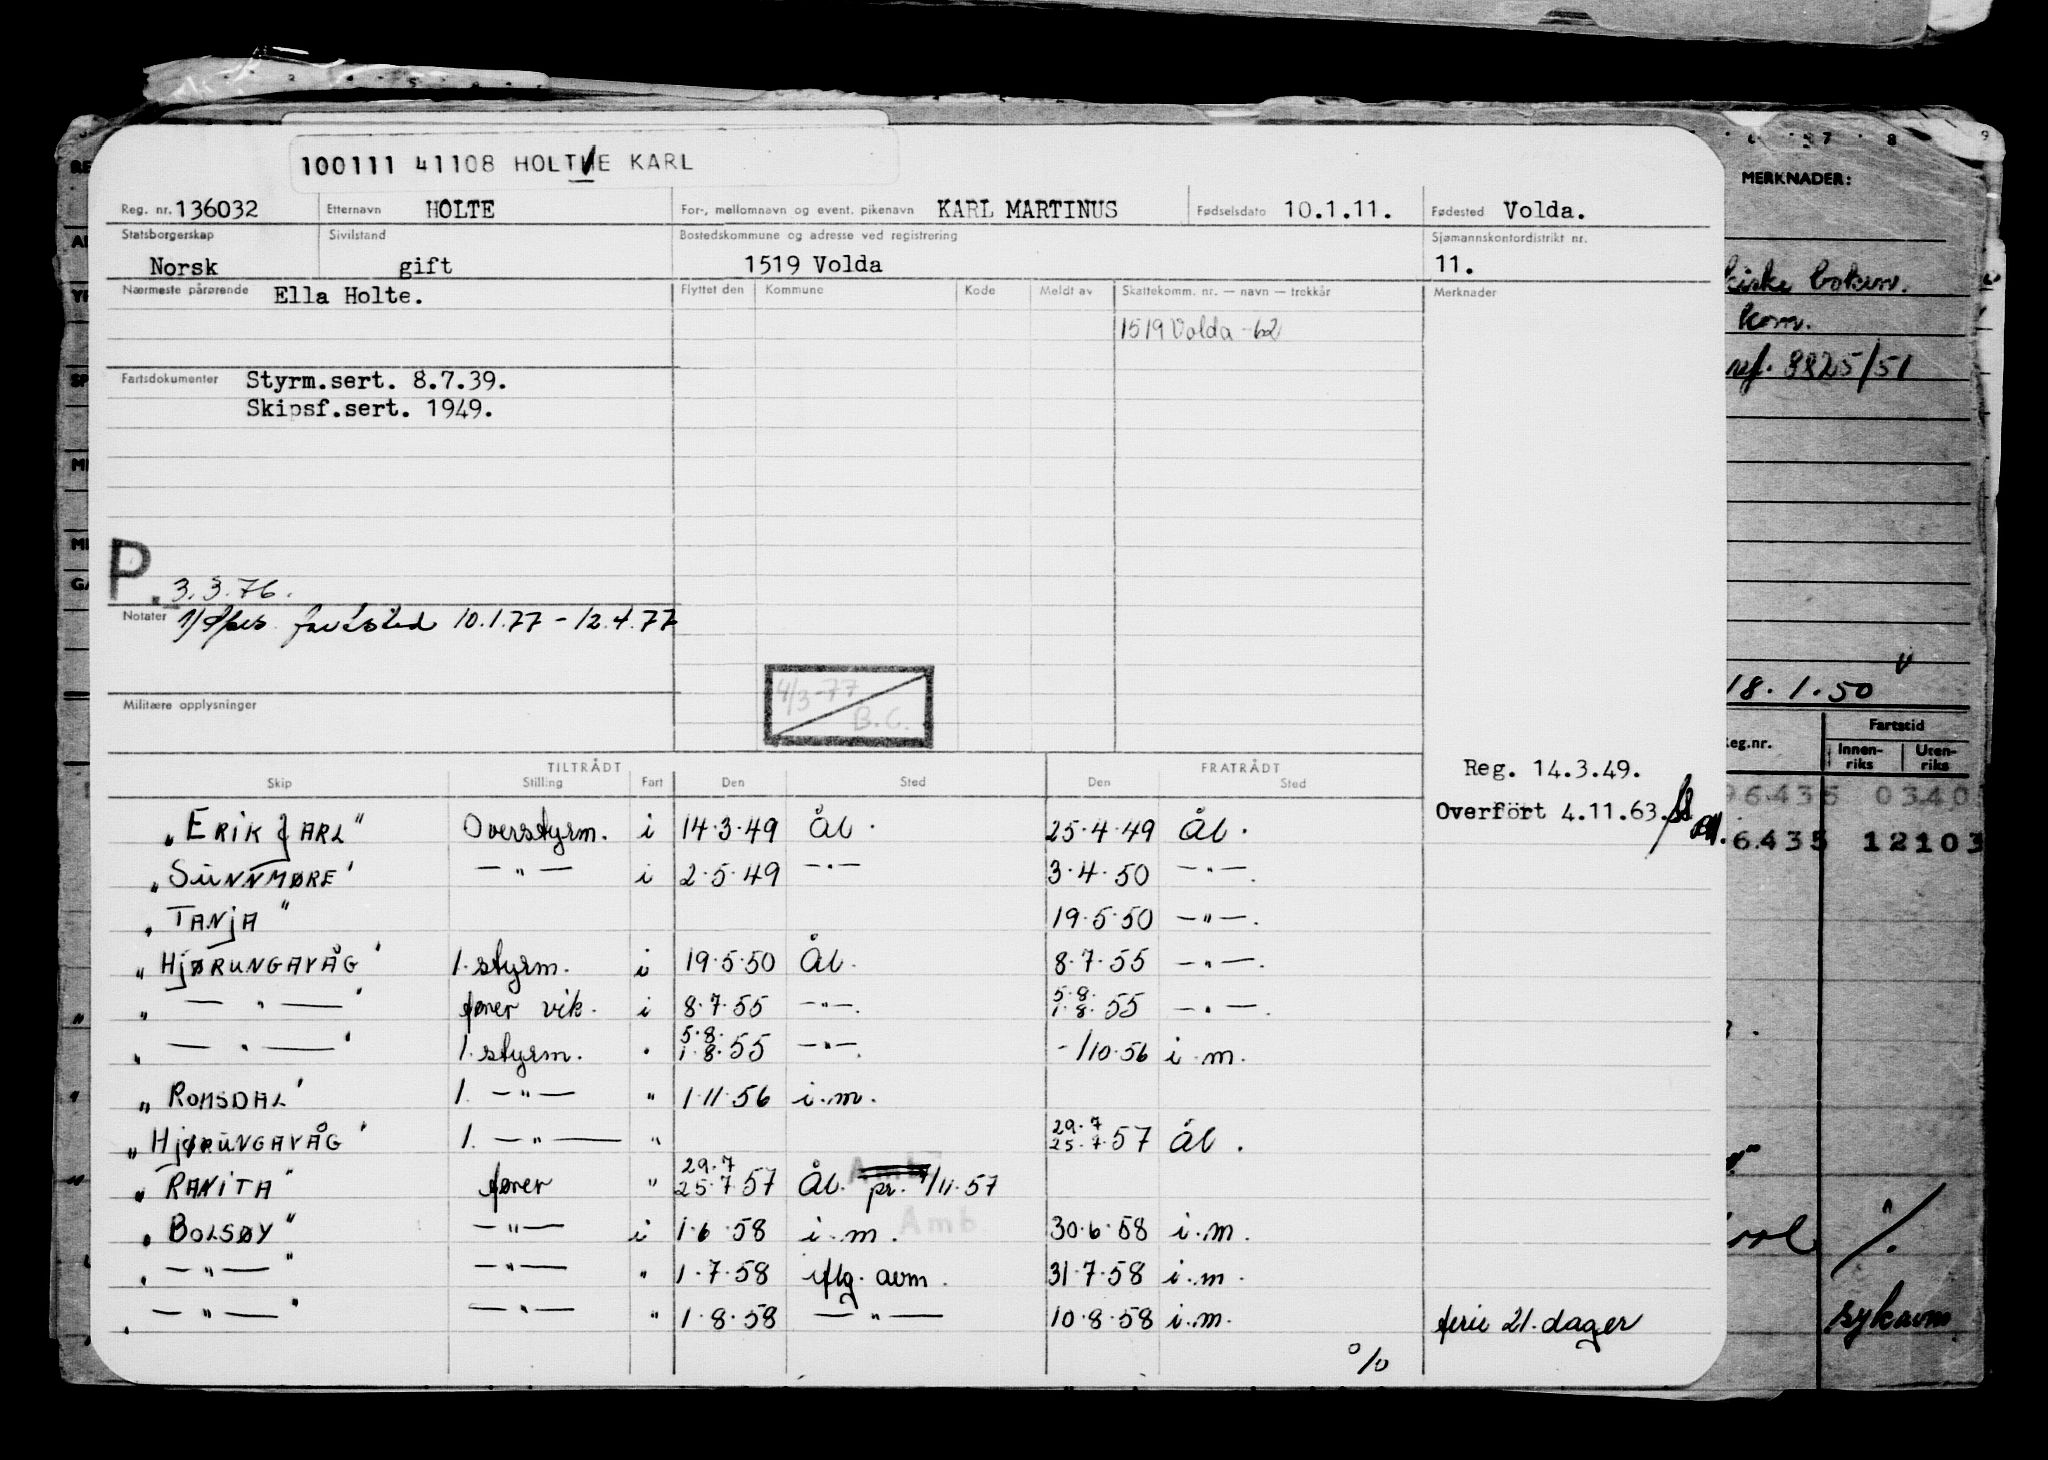 100111 41108 HOLTHE KARL
Reg. nr. 136032 Etternavn HOLTE For-, mellomnavn og event. pikenavn KARL MARTINUS Fødselsdato 10.1.11. Fødested Volda.
Statsborgerskap Sivilstand Bostedskommune og adresse ved registrering Sjømannskontordistrikt nr.
Norsk gift 1519 Volda 11.
Nærmeste pårørende Ella Holte. Flyttet den Kommune Kode Meldt av Skattekomm. nr. — navn — trekkår Merknader
1519 Volda -62
Fartsdokumenter Styrm.sert. 8.7.39.
Skipsf.sert. 1949.
P. 3.3.76.
Notater fartstid 10.1.77 - 12.4.77
4/3-77
B.C.
Militære opplysninger
TILTRÅDT FRATRÅDT
Skip Stilling Fart Den Sted Den Sted
Reg. 14.3.49.
Overført 4.11.63.
„ERIK JARL" Overstyrm. i 14·3·49 Ål. 25·4·49 Ål.
„SUNNMØRE" — " — i 2·5·49 — " — 3·4·50 — " —.
„TANJA" 19·5·50 — " —.
„HJØRUNGAVÅG" 1. styrm. i 19·5·50 Ål. 8·7·55 — " —.
„ — " — " fører vik. i 8·7·55 — " —. 5·8· 1·8·55 — " —.
„ — " — " 1. styrm. " 5·8· 1·8·55 — " —. -/10·56 i.m.
„ROMSDAL" 1. — " — " 1·11·56 i.m.
„HJØRUNGAVÅG" 1. — " — " 29·7 25·7·57 Ål.
„RANITA" fører " 29·7 25·7·57 Ål. pr. 1/11·57
Amb
„BOLSØY" — " — i 1·6·58 i.m. 30·6·58 i.m.
„ — " — " — " — " 1·7·58 iflg. avm. 31·7·58 i.m.
„ — " — " — " — " 1·8·58 — " — 10·8·58 i.m. ferie 21. dager
%
6 7 8 9
MERKNADER:
boken.
kom.
8825/51
18.1.50
Reg.nr. Fartstid
Innenriks Utenriks
96435 0340
6435 12103
%
sykavm.